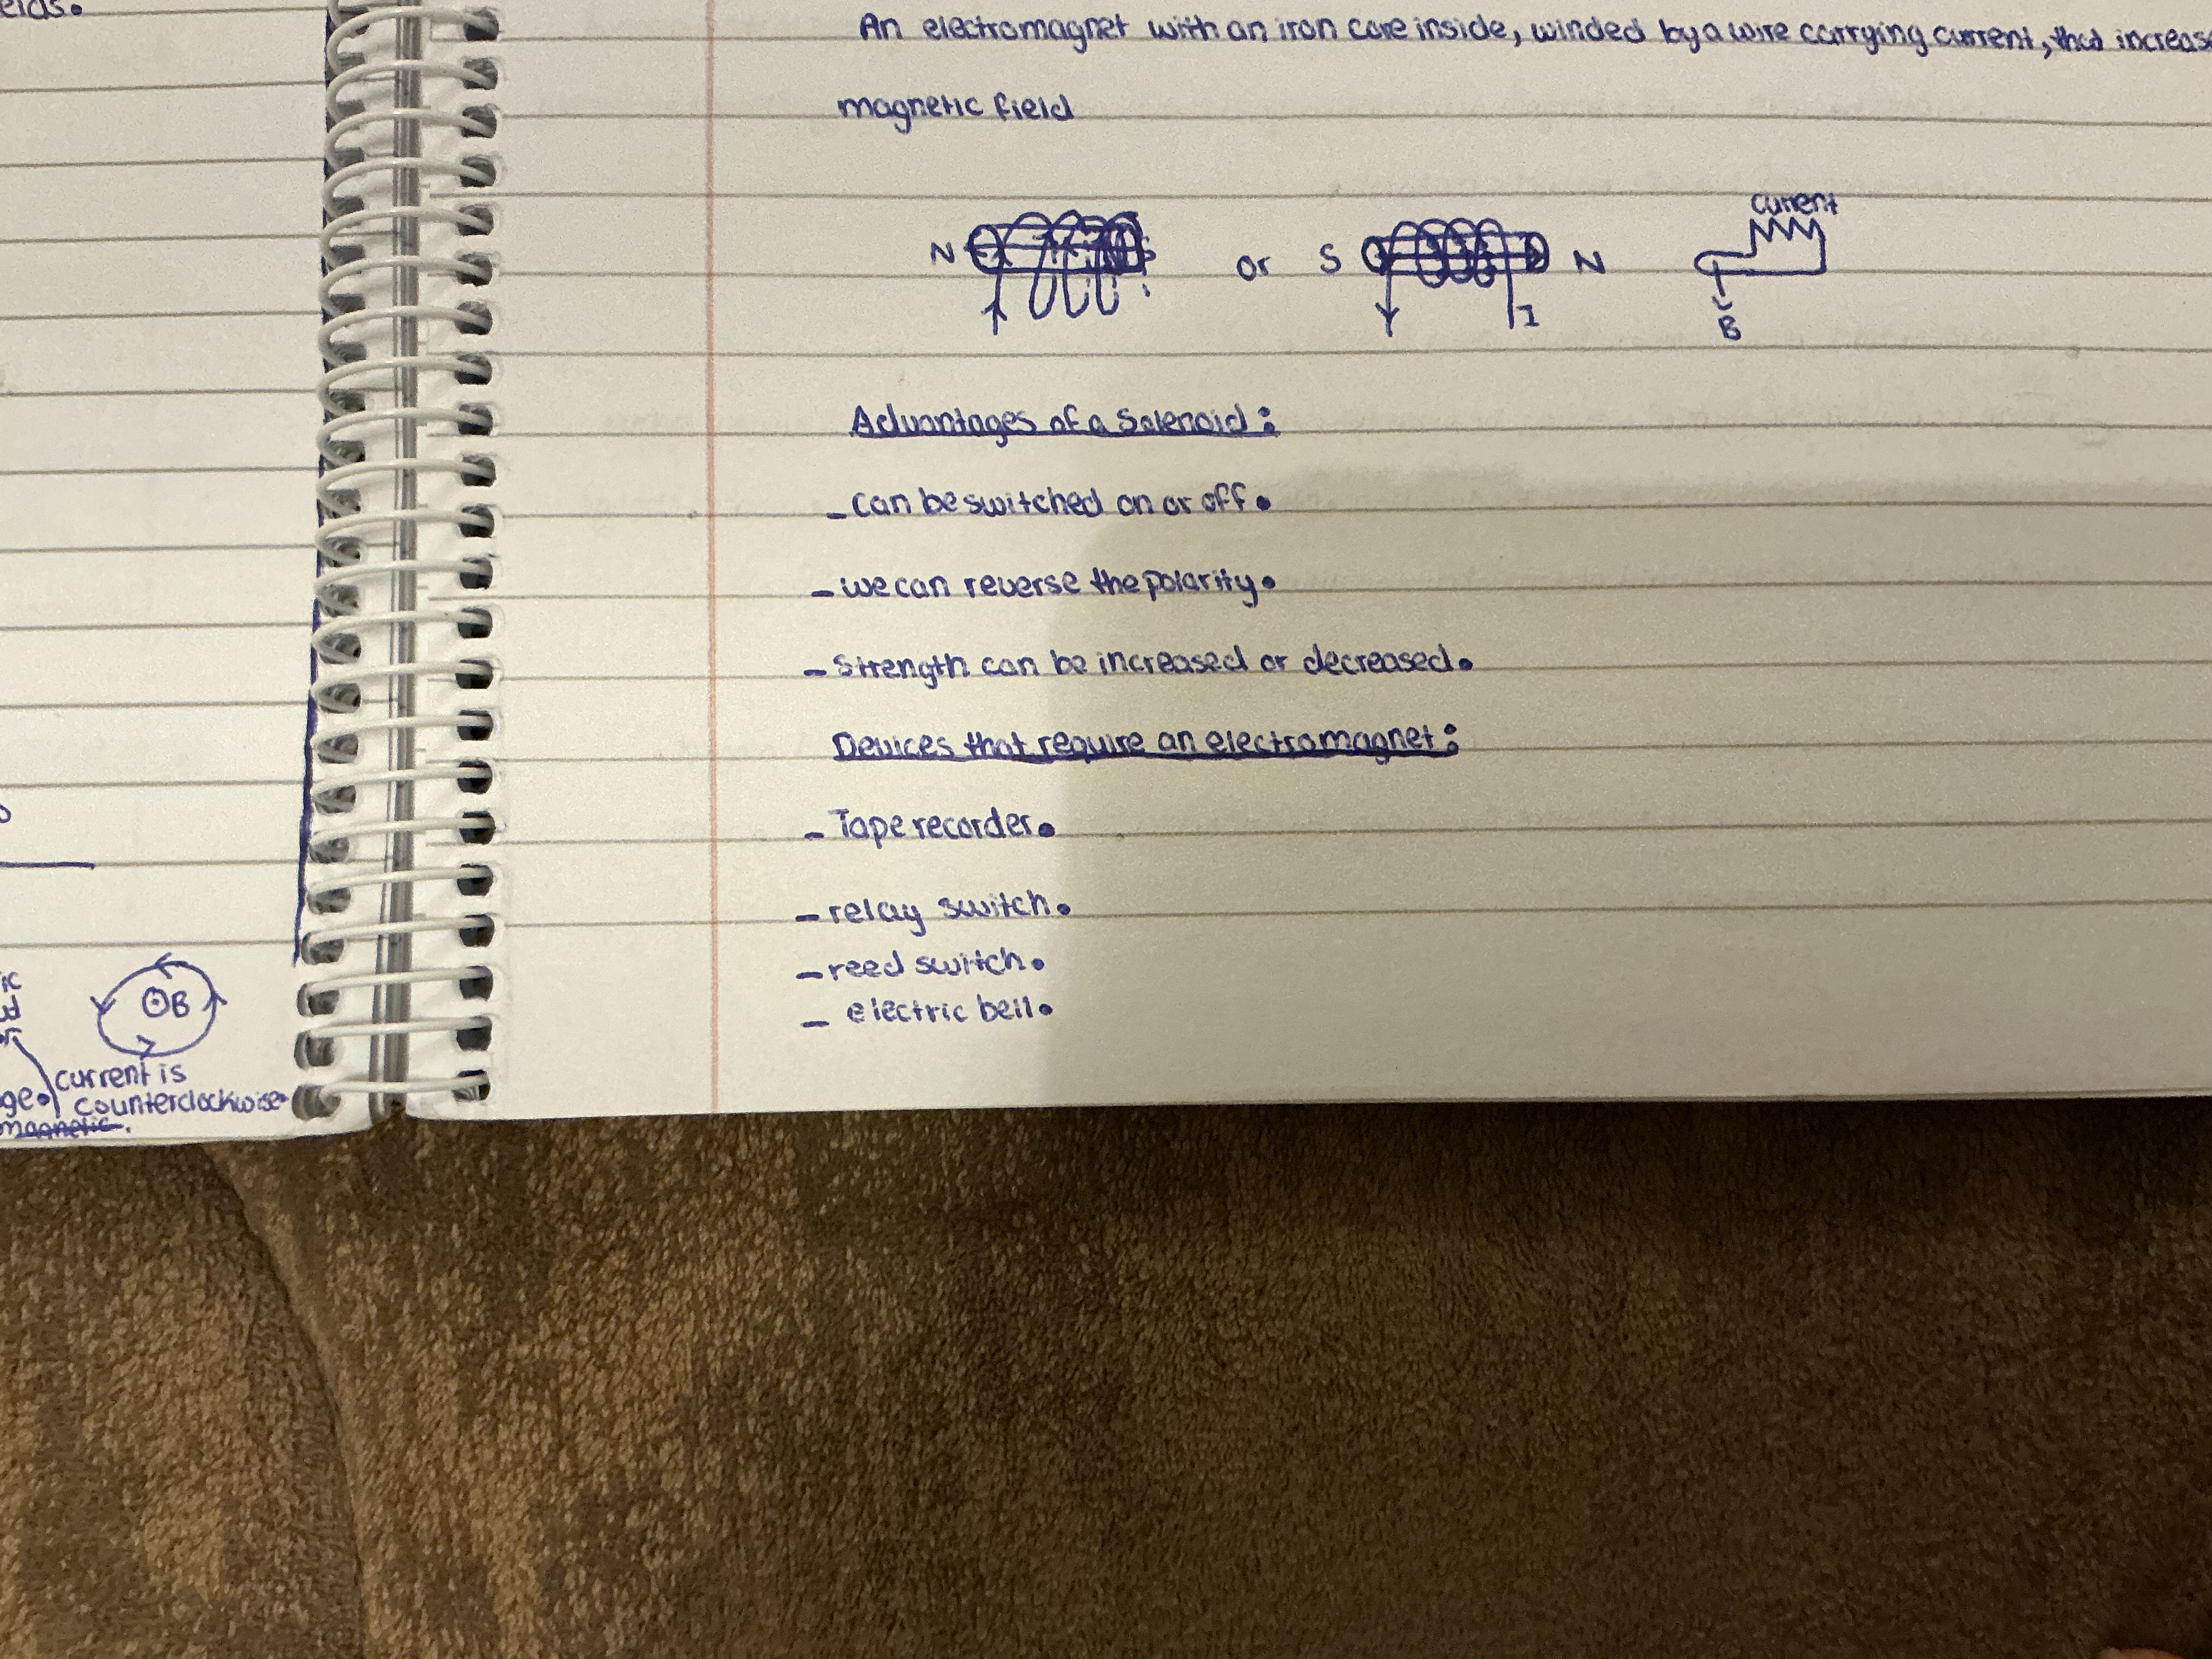 An electromagnet with an iron core inside, winded by a wire carrying current, that increas
magnetic field
N
S
or
S
N
I
current
B
Advantages of a Solenoid:
- Can be switched on or off.
- we can reverse the polarity.
- Strength can be increased or decreased.
Devices that require an electromagnet:
- Tape recorder.
- relay switch.
- reed switch.
- electric bell.
B
current is
counterclockwise.
magnetic.